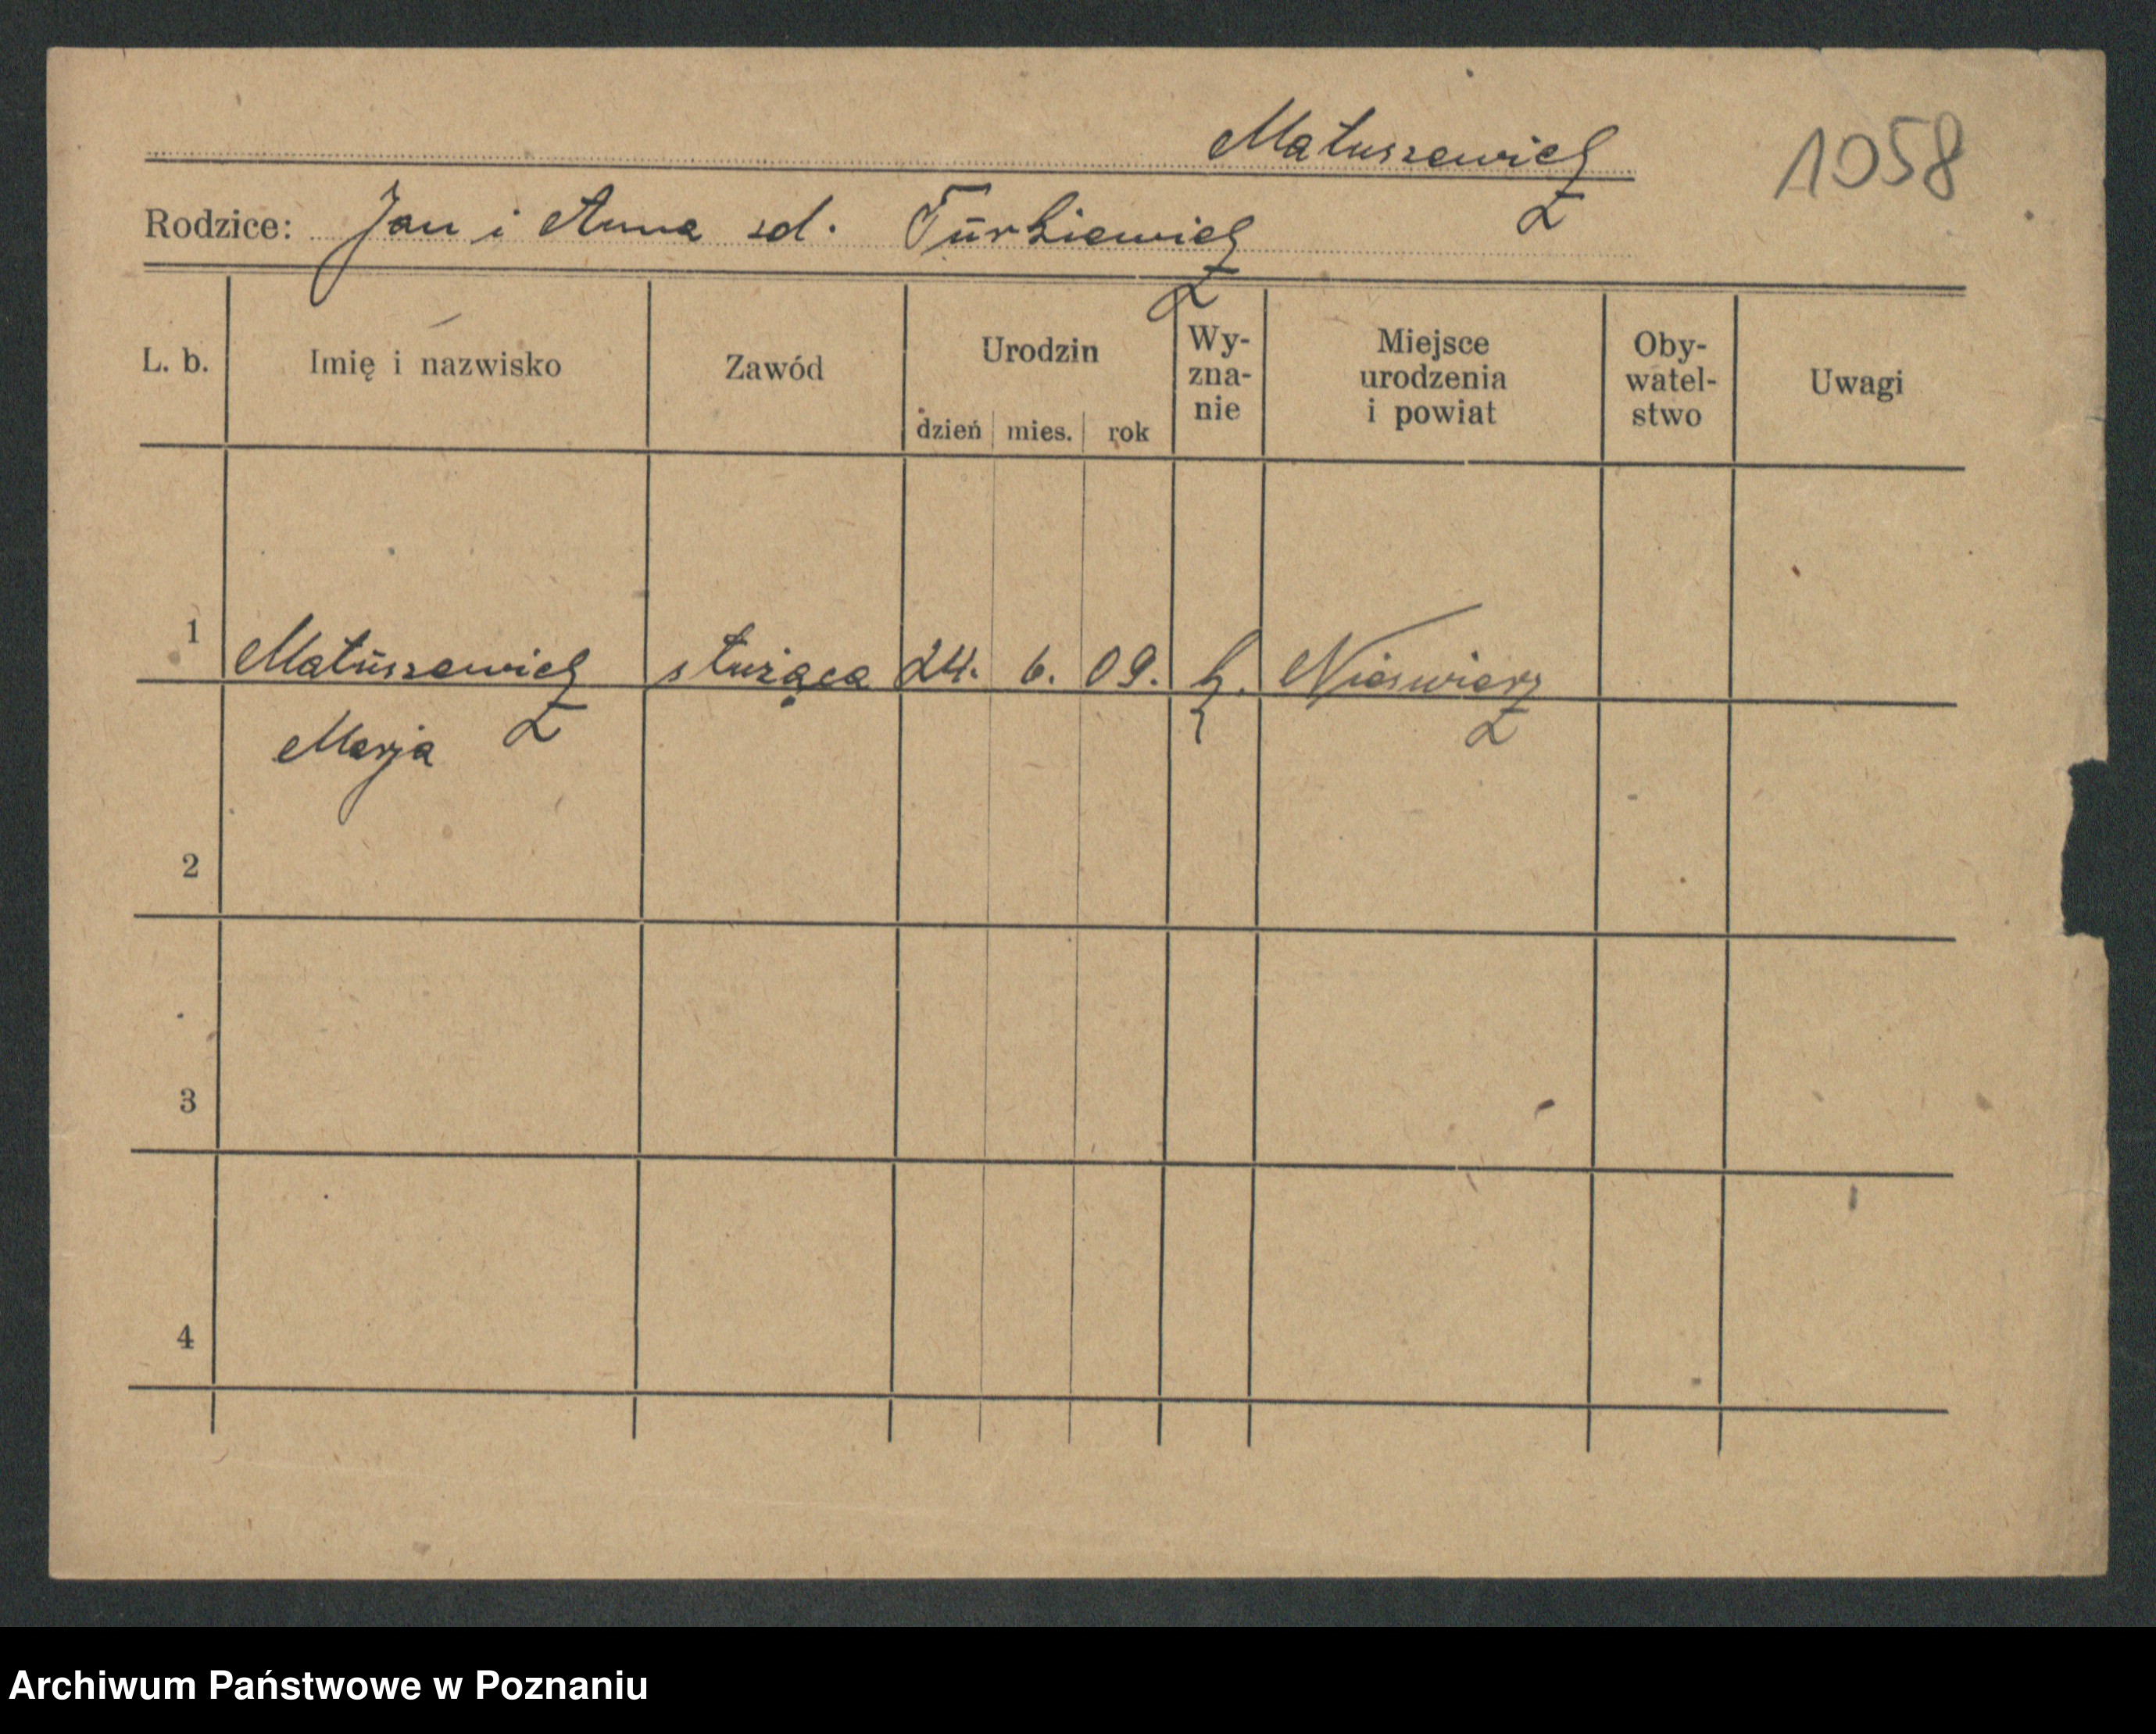 Matuszewicz
1058
Rodzice: Jan i Anna zd. Turkiewicz
L. b.
Imię i nazwisko
Zawód
Urodzin
dzień
mies.
rok
Wy-
zna-
nie
Miejsce
urodzenia
i powiat
Oby-
watel-
stwo
Uwagi
1
Matuszewicz
służąca
24. 6. 09.
Marja
2
3
4
Archiwum Państwowe w Poznaniu